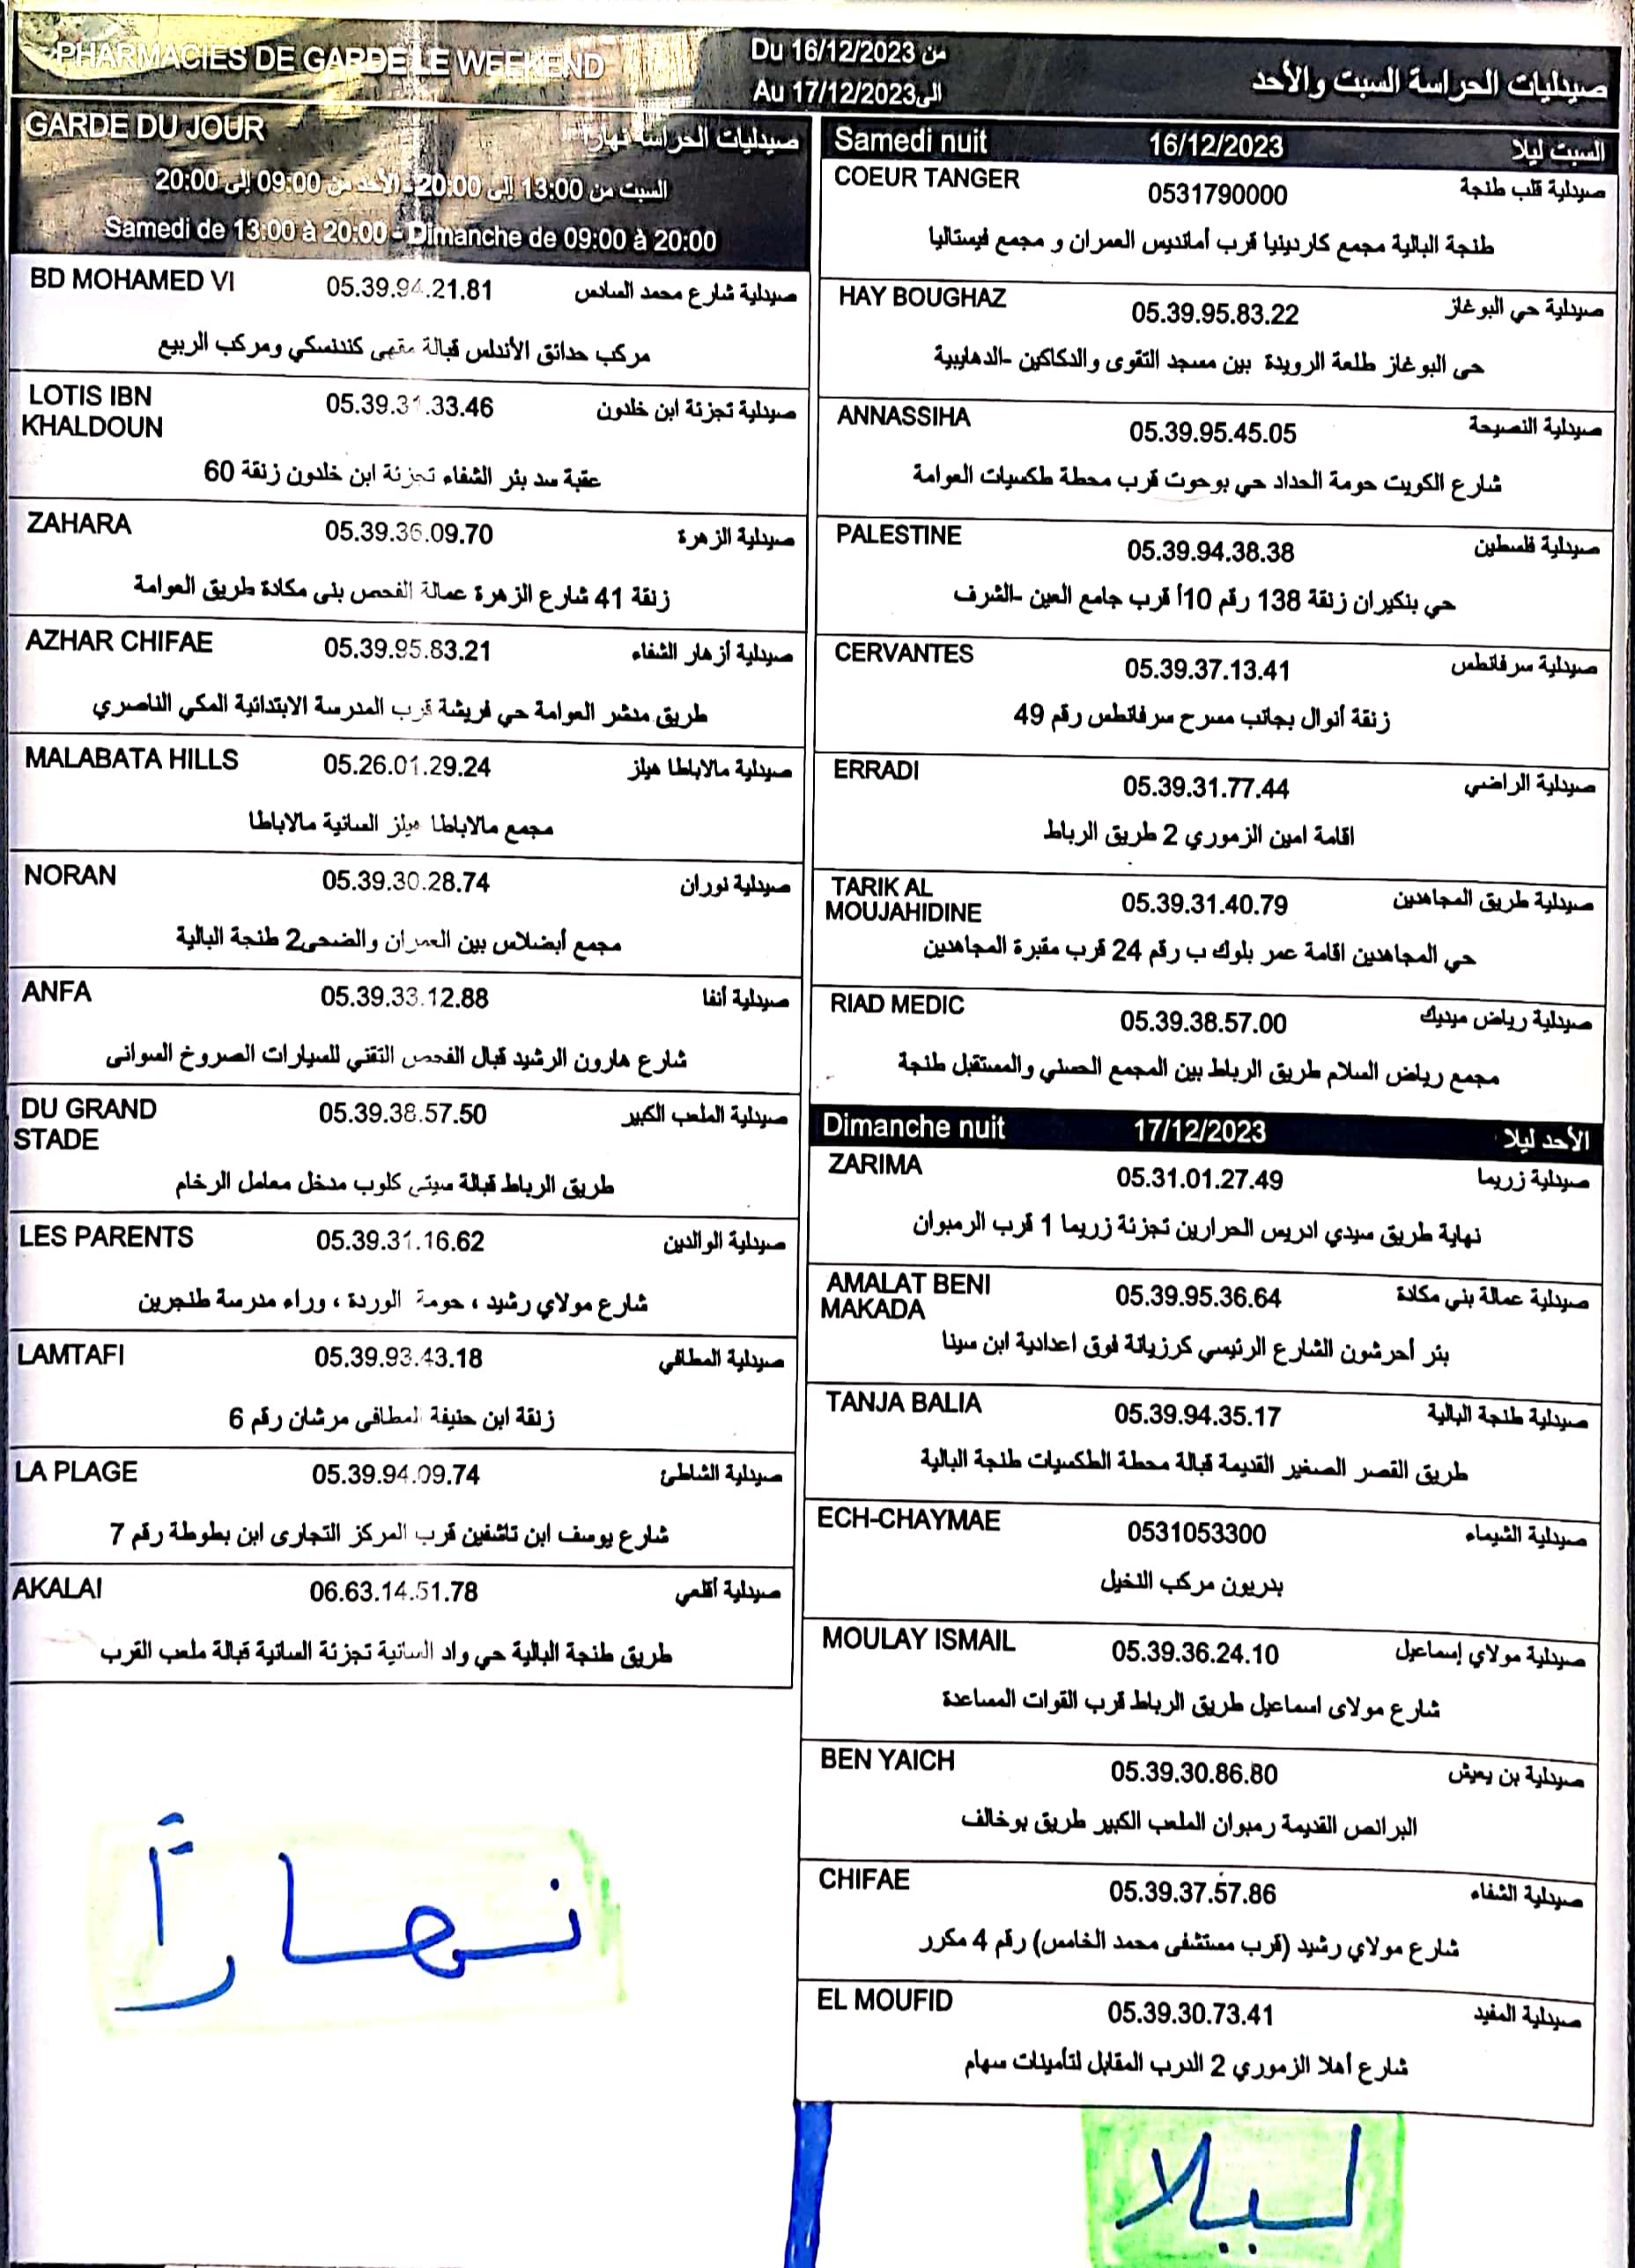 PHARMACIES DE GARDE LE WEEKEND
Du 16/12/2023 من
Au 17/12/2023الى
صيدليات الحراسة السبت والأحد
GARDE DU JOUR صيدليات الحراسة نهارا
السبت من 13:00 إلى 20:00 - الأحد من 09:00 إلى 20:00
Samedi de 13:00 à 20:00 - Dimanche de 09:00 à 20:00
BD MOHAMED VI 05.39.94.21.81 صيدلية شارع محمد السادس
مركب حدائق الأندلس قبالة مقهى كندنسكي ومركب الربيع
LOTIS IBN KHALDOUN 05.39.31.33.46 صيدلية تجزئة ابن خلدون
عقبة سد بئر الشفاء تجزئة ابن خلدون زنقة 60
ZAHARA 05.39.36.09.70 صيدلية الزهرة
زنقة 41 شارع الزهرة عمالة الفحص بنى مكادة طريق العوامة
AZHAR CHIFAE 05.39.95.83.21 صيدلية أزهار الشفاء
طريق مدشر العوامة حي فريشة قرب المدرسة الابتدائية المكي الناصري
MALABATA HILLS 05.26.01.29.24 صيدلية مالاباطا هيلز
مجمع مالاباطا هيلز السانية مالاباطا
NORAN 05.39.30.28.74 صيدلية نوران
مجمع أبضلاس بين العمران والضحى2 طنجة البالية
ANFA 05.39.33.12.88 صيدلية أنفا
شارع هارون الرشيد قبال الفحص التقني للسيارات الصروخ السوانى
DU GRAND STADE 05.39.38.57.50 صيدلية الملعب الكبير
طريق الرباط قبالة سيتى كلوب مدخل معامل الرخام
LES PARENTS 05.39.31.16.62 صيدلية الوالدين
شارع مولاي رشيد ، حومة الوردة ، وراء مدرسة طنجرين
LAMTAFI 05.39.93.43.18 صيدلية المطافي
زنقة ابن حنيفة المطافى مرشان رقم 6
LA PLAGE 05.39.94.09.74 صيدلية الشاطئ
شارع يوسف ابن تاشفين قرب المركز التجارى ابن بطوطة رقم 7
AKALAI 06.63.14.51.78 صيدلية أقلعي
طريق طنجة البالية حي واد السانية تجزئة السانية قبالة ملعب القرب
نهاراً
Samedi nuit 16/12/2023 السبت ليلا
COEUR TANGER 0531790000 صيدلية قلب طنجة
طنجة البالية مجمع كاردينيا قرب أمانديس العمران و مجمع فيستاليا
HAY BOUGHAZ 05.39.95.83.22 صيدلية حي البوغاز
حى البوغاز طلعة الرويدة بين مسجد التقوى والدكاكين -الدهايبية
ANNASSIHA 05.39.95.45.05 صيدلية النصيحة
شارع الكويت حومة الحداد حي بوحوت قرب محطة طكسيات العوامة
PALESTINE 05.39.94.38.38 صيدلية فلسطين
حي بنكيران زنقة 138 رقم 10أ قرب جامع العين -الشرف
CERVANTES 05.39.37.13.41 صيدلية سرفانطس
زنقة أنوال بجانب مسرح سرفانطس رقم 49
ERRADI 05.39.31.77.44 صيدلية الراضي
اقامة امين الزموري 2 طريق الرباط
TARIK AL MOUJAHIDINE 05.39.31.40.79 صيدلية طريق المجاهدين
حي المجاهدين اقامة عمر بلوك ب رقم 24 قرب مقبرة المجاهدين
RIAD MEDIC 05.39.38.57.00 صيدلية رياض ميديك
مجمع رياض السلام طريق الرباط بين المجمع الحسني والمستقبل طنجة
Dimanche nuit 17/12/2023 الأحد ليلا
ZARIMA 05.31.01.27.49 صيدلية زريما
نهاية طريق سيدي ادريس الحرارين تجزئة زريما 1 قرب الرمبوان
AMALAT BENI MAKADA 05.39.95.36.64 صيدلية عمالة بني مكادة
بئر أحرشون الشارع الرئيسي كرزيانة فوق اعدادية ابن سينا
TANJA BALIA 05.39.94.35.17 صيدلية طنجة البالية
طريق القصر الصغير القديمة قبالة محطة الطكسيات طنجة البالية
ECH-CHAYMAE 0531053300 صيدلية الشيماء
بدريون مركب النخيل
MOULAY ISMAIL 05.39.36.24.10 صيدلية مولاي إسماعيل
شارع مولاى اسماعيل طريق الرباط قرب القوات المساعدة
BEN YAICH 05.39.30.86.80 صيدلية بن يعيش
البرانص القديمة رمبوان الملعب الكبير طريق بوخالف
CHIFAE 05.39.37.57.86 صيدلية الشفاء
شارع مولاي رشيد (قرب مستشفى محمد الخامس) رقم 4 مكرر
EL MOUFID 05.39.30.73.41 صيدلية المفيد
شارع أهلا الزموري 2 الدرب المقابل لتأمينات سهام
ليلا